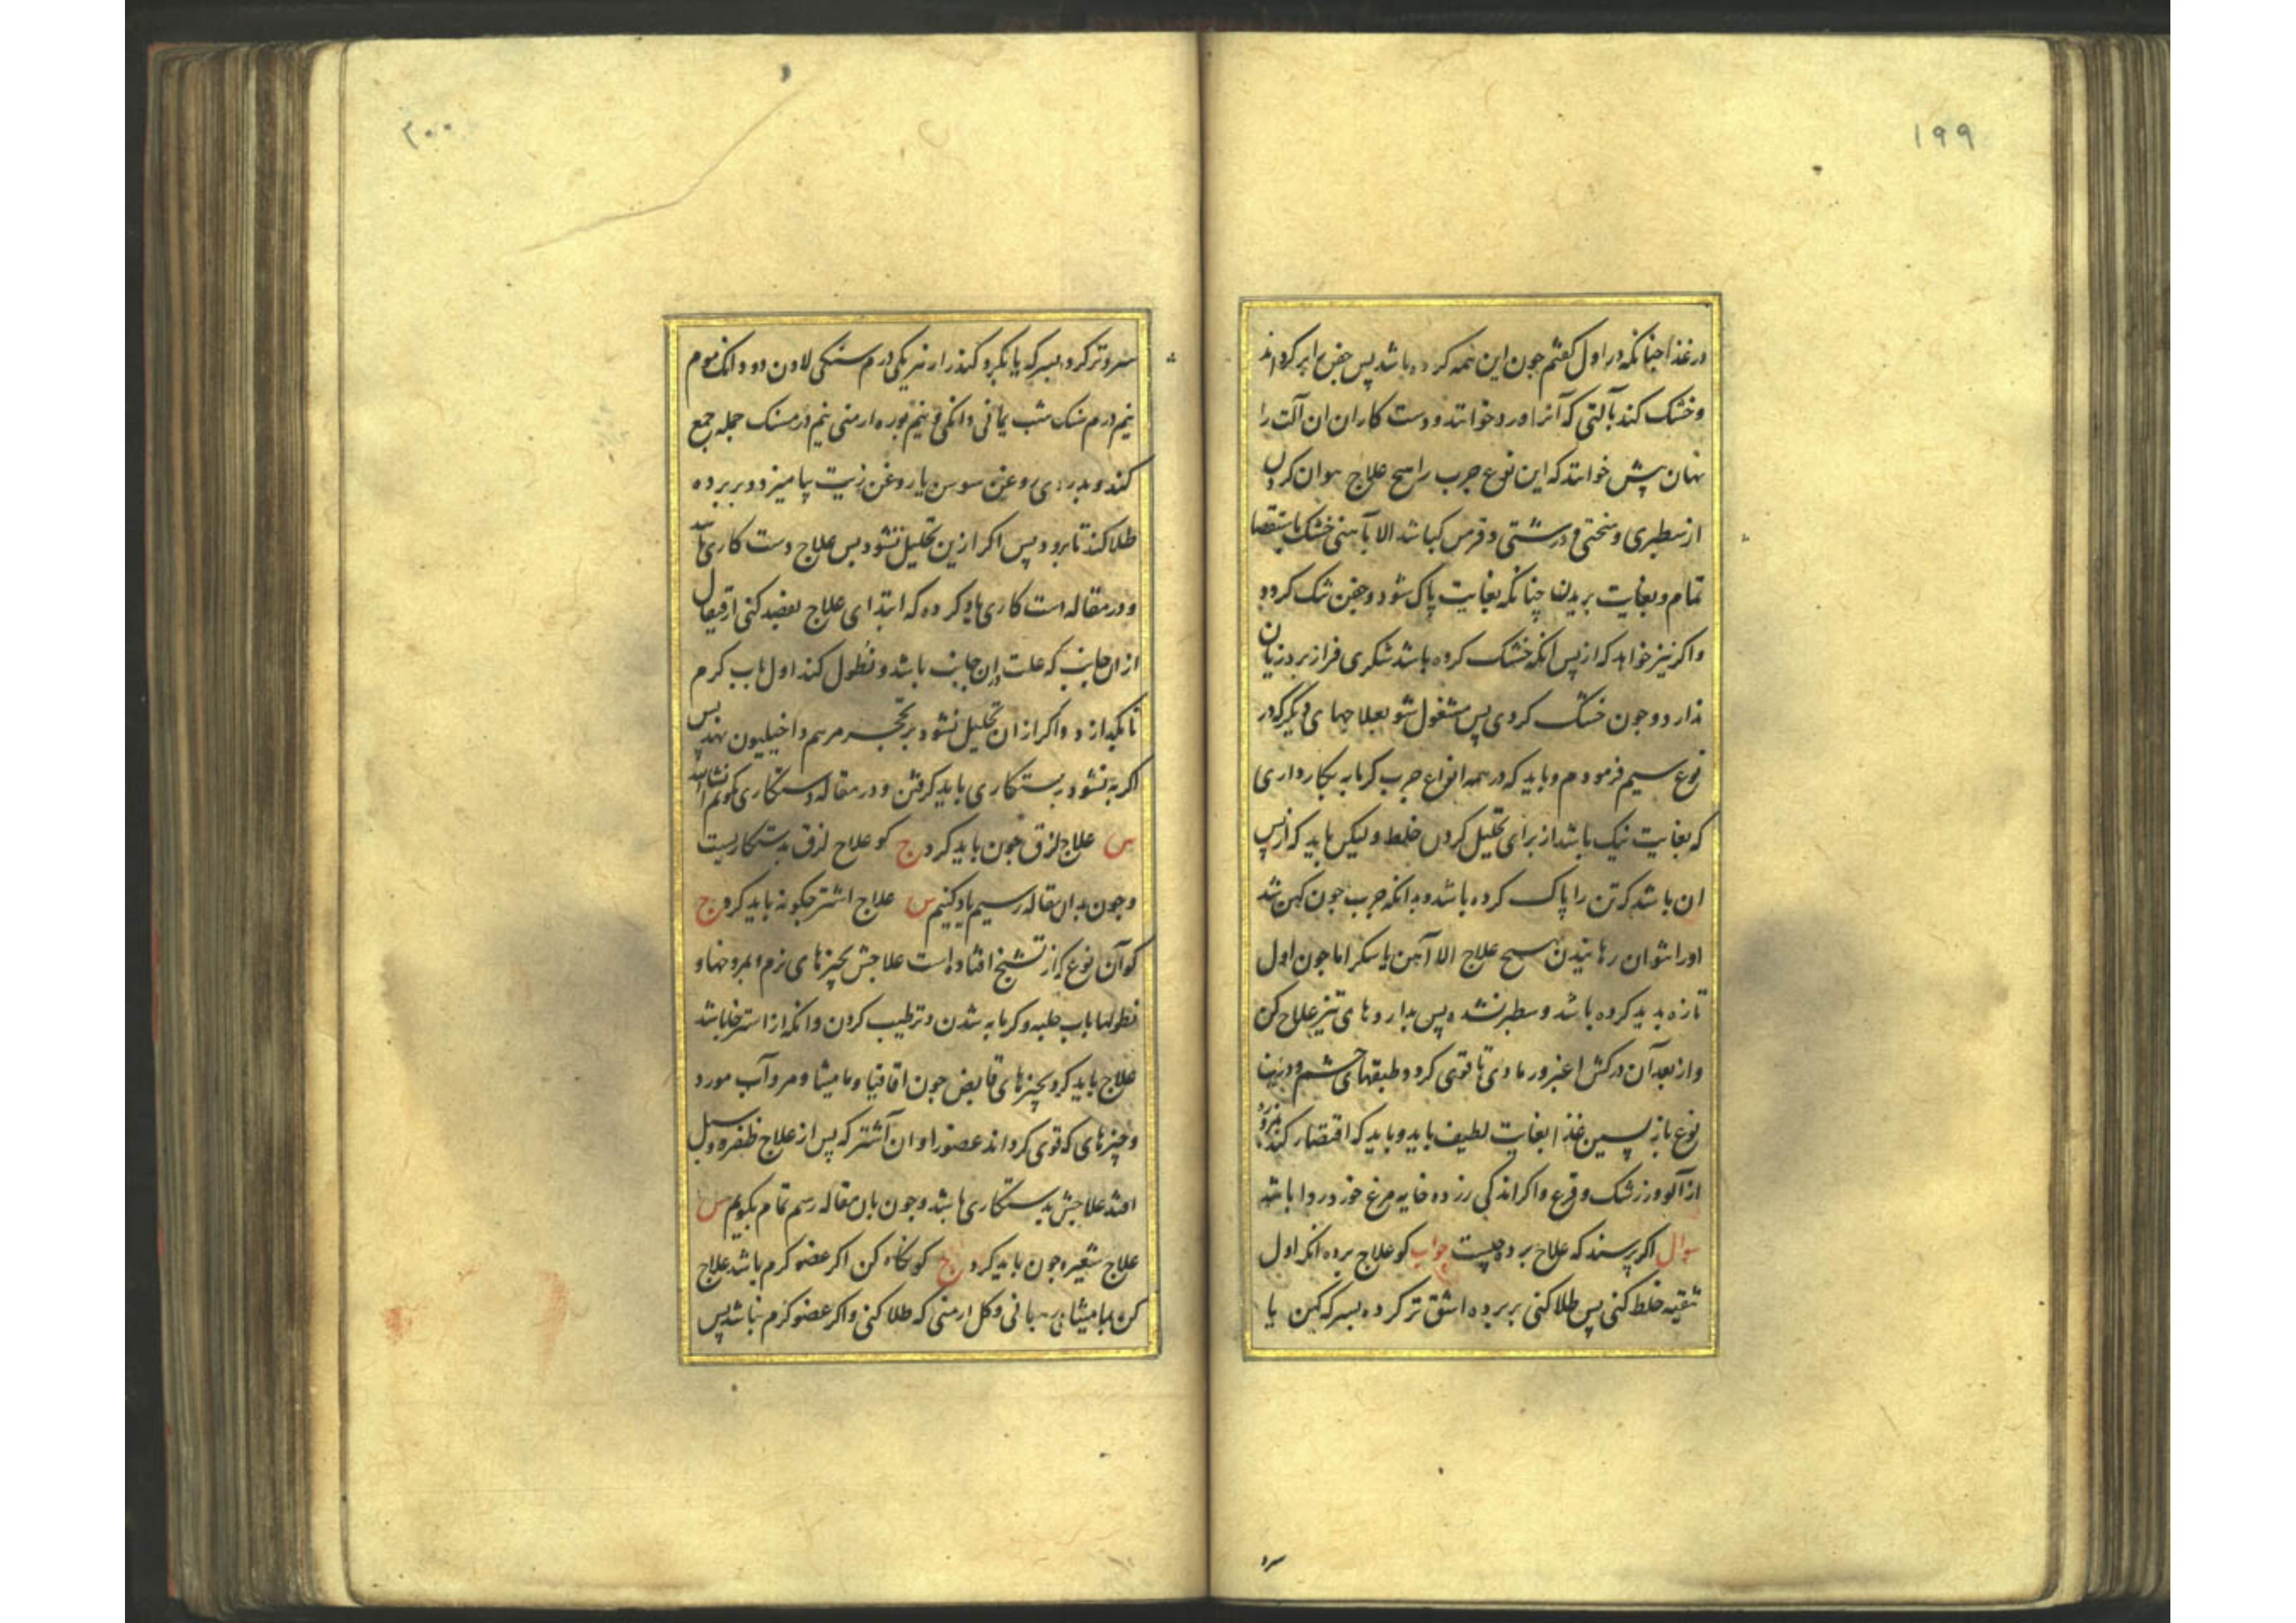 ۱۹۹
در غذا چنانکه در اول کفتم جون این همه کرده باشد پس جفن را برکرداند
وخشک کند بآلتی که آنرا ورد خوانند و دست کاران ان آلت را
نهان پیش خوانند که این نوع جرب را هیچ علاج نتوان کردن
از سطبری و سختی و درشتی و قرص کباشد الا بآهنی خشک باستقصا
تمام و بغایت بریدن چنانکه بغایت پاک شود و جفن تنک کردد
واکر نیز خواهد که از پس انکه خشک کرده باشد شکری فراز برد زیان
ندارد و جون خشک کردی پس مشغول شو بعلاجهای دیکر که در
نوع سیم فرمودم و باید که در همه انواع جرب کرمابه بکار داری
که بغایت نیک باشد از برای تحلیل کردن خلط ولیکن باید که از پس
ان باشد که تن را پاک کرده باشد و بدانکه جرب جون کهن شد
اورا نتوان رهانیدن بهیچ علاج الا آهن یا سکر اما جون اول
تازه بدید کرده باشد و سطبر نشده پس بداروهای تیز علاج کن
واز بعد آن درکش اغبر و رمادی تا قوی کردد طبقهای چشم و درین
نوع بازپسین غذا بغایت لطیف باید و باید که اقتصار کند بمزوره
از آلو و زرشک و قرع واکر اندکی زرده خایه مرغ خورد روا باشد
سوال اکر پرسند که علاج برده چیست جواب کو علاج برده انکه اول
تنقیه خلط کنی پس طلا کنی بر برده اشق تر کرده بسرکه کهن یا
سرو
۲۰۰
سرو تر کرده بسرکه یا بکیرد کندر ارنبر یکی درم سنکی لادن دو دانک موم
نیم درم سنک شب یمانی دانکی و نیم بوره ارمنی نیم درمسنک جمله جمع
کند و بدردی روغن سوسن یا روغن زیت بیامیزد و بر برده
طلا کند تا برود پس اکر ازین تحلیل نشود پس علاج دست کاری باشد
و در مقاله دست کاری یاد کرده که ابتدای علاج بفصد کنی از قیفال
از ان جانب که علت بدان جانب باشد و نطول کند اول باب کرم
تا بکدازد و اکر از ان تحلیل نشود بر تحجر مرهم داخیلیون نهد پس
اکر به نشود بدستکاری باید کرفتن و در مقاله دستکاری کویم انشاالله
س علاج لزق جون باید کرد ج کو علاج لزق بدستکاریست
وجون بدان مقاله رسیم یاد کنیم س علاج اشتر جکونه باید کرد ج
کو آن نوع که از تشنج افتاده است علاجش بچیزهای نرم و بمروخها و
نطولها باب حلبه و کرمابه شدن و ترطیب کردن و انکه از استرخا باشد
علاج باید کرد بچیزهای قابض جون اقاقیا و مامیشا و مر و آب مورد
و چیزهای که قوی کرداند عضورا و ان اشتر که پس از علاج ظفره و سبل
افتد علاجش بدستکاری باشد و جون بان مقاله رسم تمام بکویم س
علاج شعیره جون باید کرد ج کو نکاه کن اکر عضو کرم باشد علاج
کن بمامیشا و کل ارمنی که طلا کنی و اکر عضو کرم نباشد پس